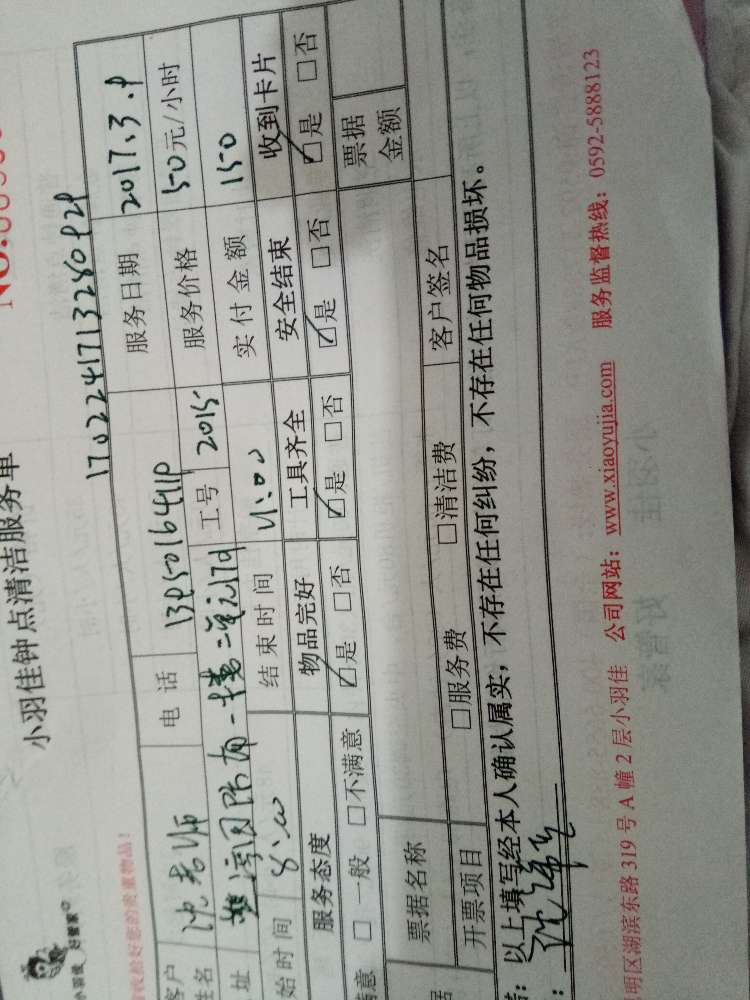 小羽佳 好管家
小羽佳钟点清洁服务单
收拾好您的贵重物品!
170224171328092P
客户姓名 沈老师 电话 服务日期 2017.3.9
址 工号 2015 服务价格 50元/小时
始时间 8:00 结束时间 11:00 实付金额 150
服务态度 物品完好 工具齐全 安全结束 收到卡片
意 □一般 □不满意 ☑是 □否 ☑是 □否 ☑是 □否 ☑是 □否
票据名称 票据金额
开票项目 □服务费 □清洁费 客户签名
以上填写经本人确认属实,不存在任何纠纷,不存在任何物品损坏。
明区湖滨东路 319 号 A 幢 2 层小羽佳 公司网站:www.xiaoyujia.com 服务监督热线:0592-5888123